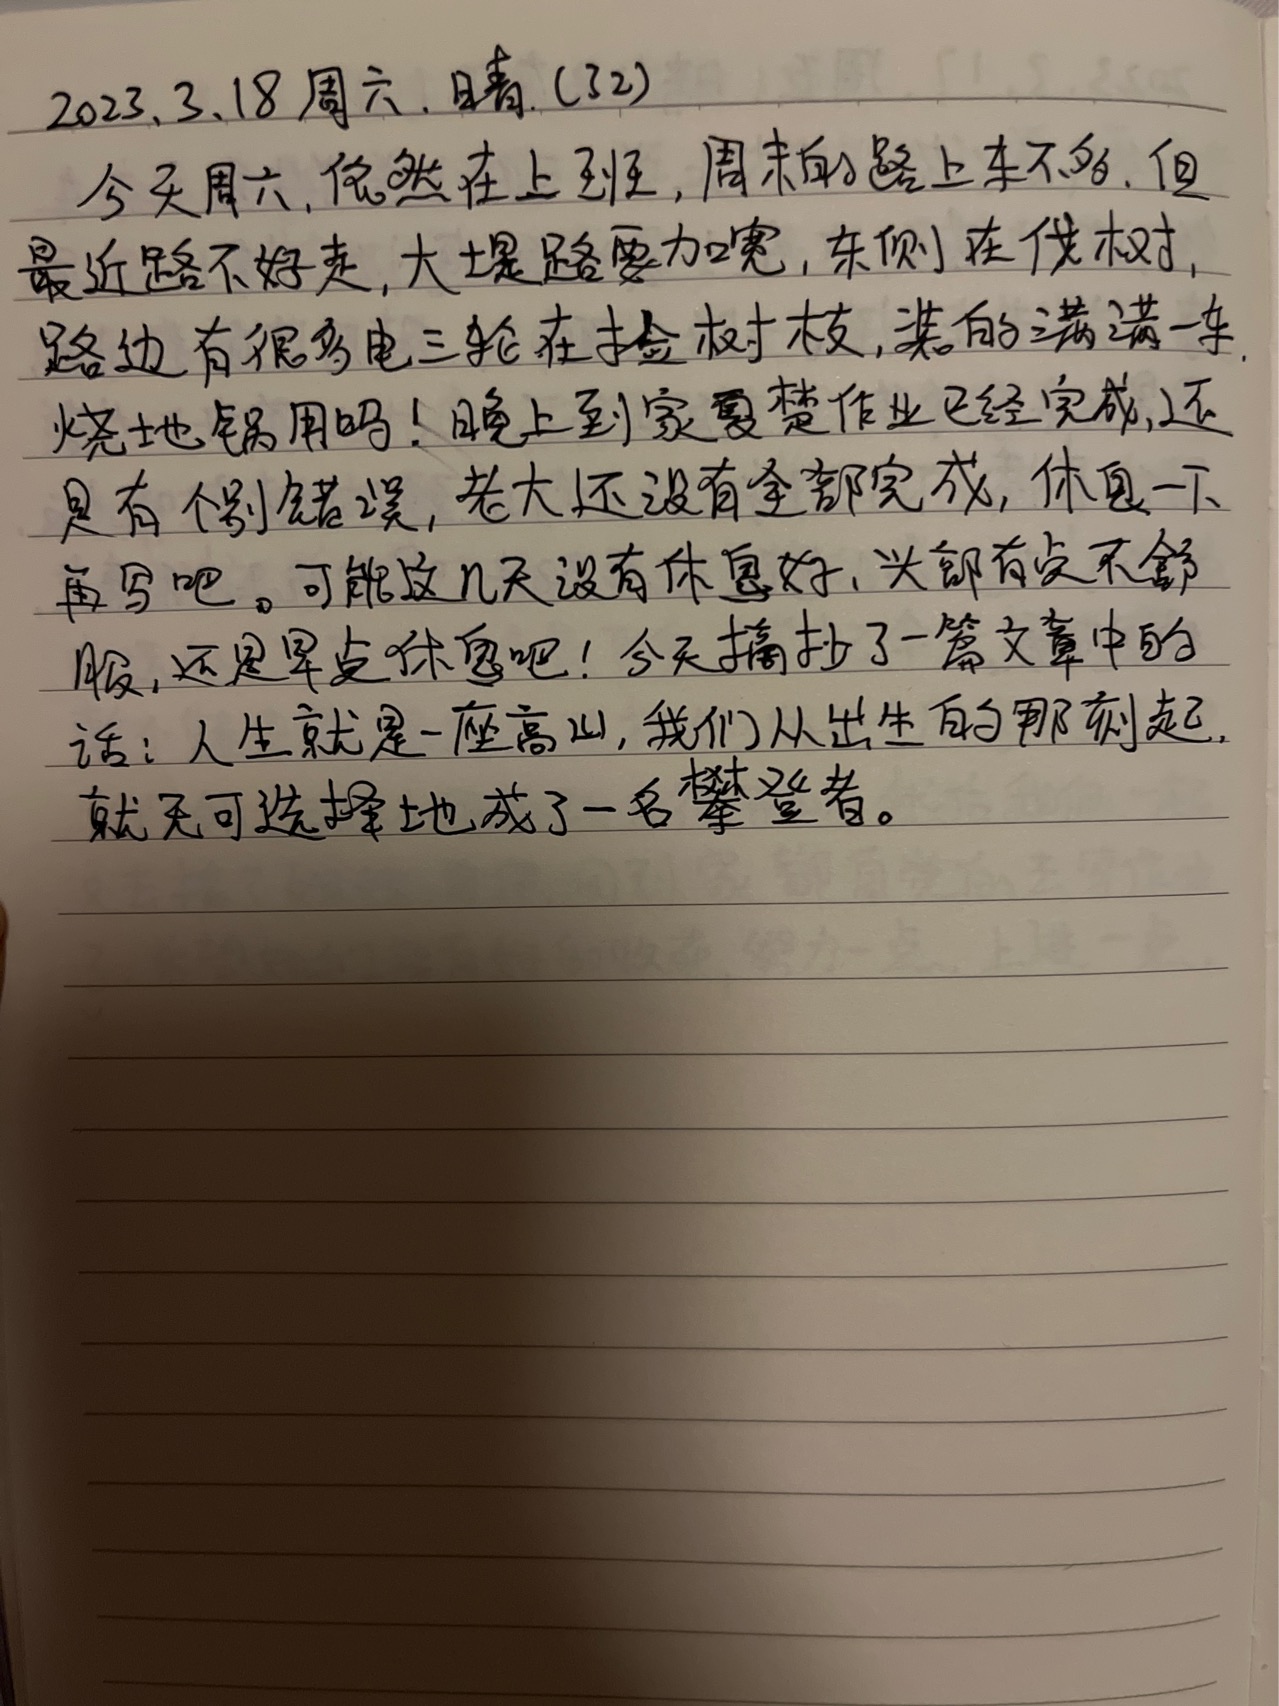 2023.3.18周六.晴.(32)
今天周六,依然在上班,周末的路上车不多.但
最近路不好走,大堤路要加宽,东侧在伐树,
路边有很多电三轮在捡树枝,装的满满一车.
烧地锅用吗!晚上到家夏楚作业已经完成,还
只有个别错误,老大还没有全部完成,休息一下
再写吧。可能这几天没有休息好,头部有点不舒
服,还是早点休息吧!今天摘抄了一篇文章中的
话:人生就是一座高山,我们从出生的那刻起,
就无可选择地成了一名攀登者。